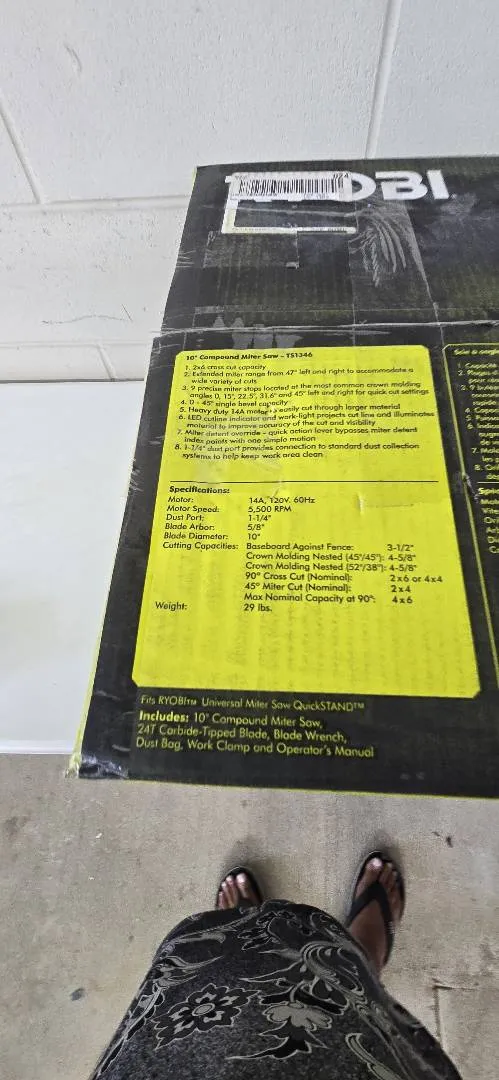 OBI
10" Compound Miter Saw – TS1346
1. 2x6 cross cut capacity
2. Extended miter range from 47° left and right to accommodate a
wide variety of cuts
3. 9 precise miter stops located at the most common crown molding
angles 0, 15°, 22.5°, 31.6° and 45° left and right for quick cut settings
4. 0 - 45° single bevel capacity
5. Heavy duty 14A motor easily cut through larger material
6. LED cutline indicator and work-light projects cut line and illuminates
material to improve accuracy of the cut and visibility
7. Miter detent override – quick action lever bypasses miter detent
index points with one simple motion
8. 1-1/4" dust port provides connection to standard dust collection
systems to help keep work area clean
Specifications:
Motor: 14A, 120V, 60Hz
Motor Speed: 5,500 RPM
Dust Port: 1-1/4"
Blade Arbor: 5/8"
Blade Diameter: 10"
Cutting Capacities: Baseboard Against Fence: 3-1/2"
Crown Molding Nested (45°/45°): 4-5/8"
Crown Molding Nested (52°/38°): 4-5/8"
90° Cross Cut (Nominal): 2x6 or 4x4
45° Miter Cut (Nominal): 2x4
Max Nominal Capacity at 90°: 4x6
Weight: 29 lbs.
Fits RYOBI™ Universal Miter Saw QuickSTAND™
Includes: 10" Compound Miter Saw,
24T Carbide-Tipped Blade, Blade Wrench,
Dust Bag, Work Clamp and Operator's Manual